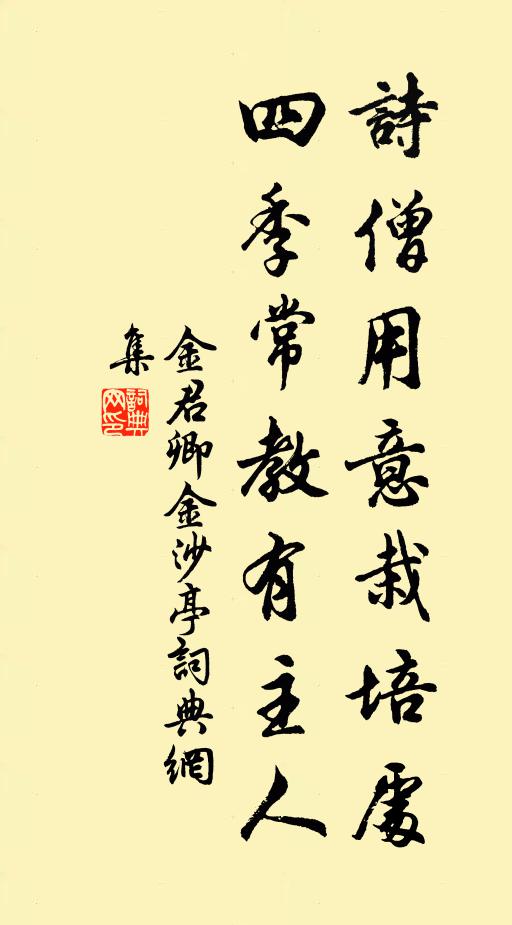 詩僧用意栽培處
四季常教有主人
金君卿金沙亭詞典網
集
詞典网印